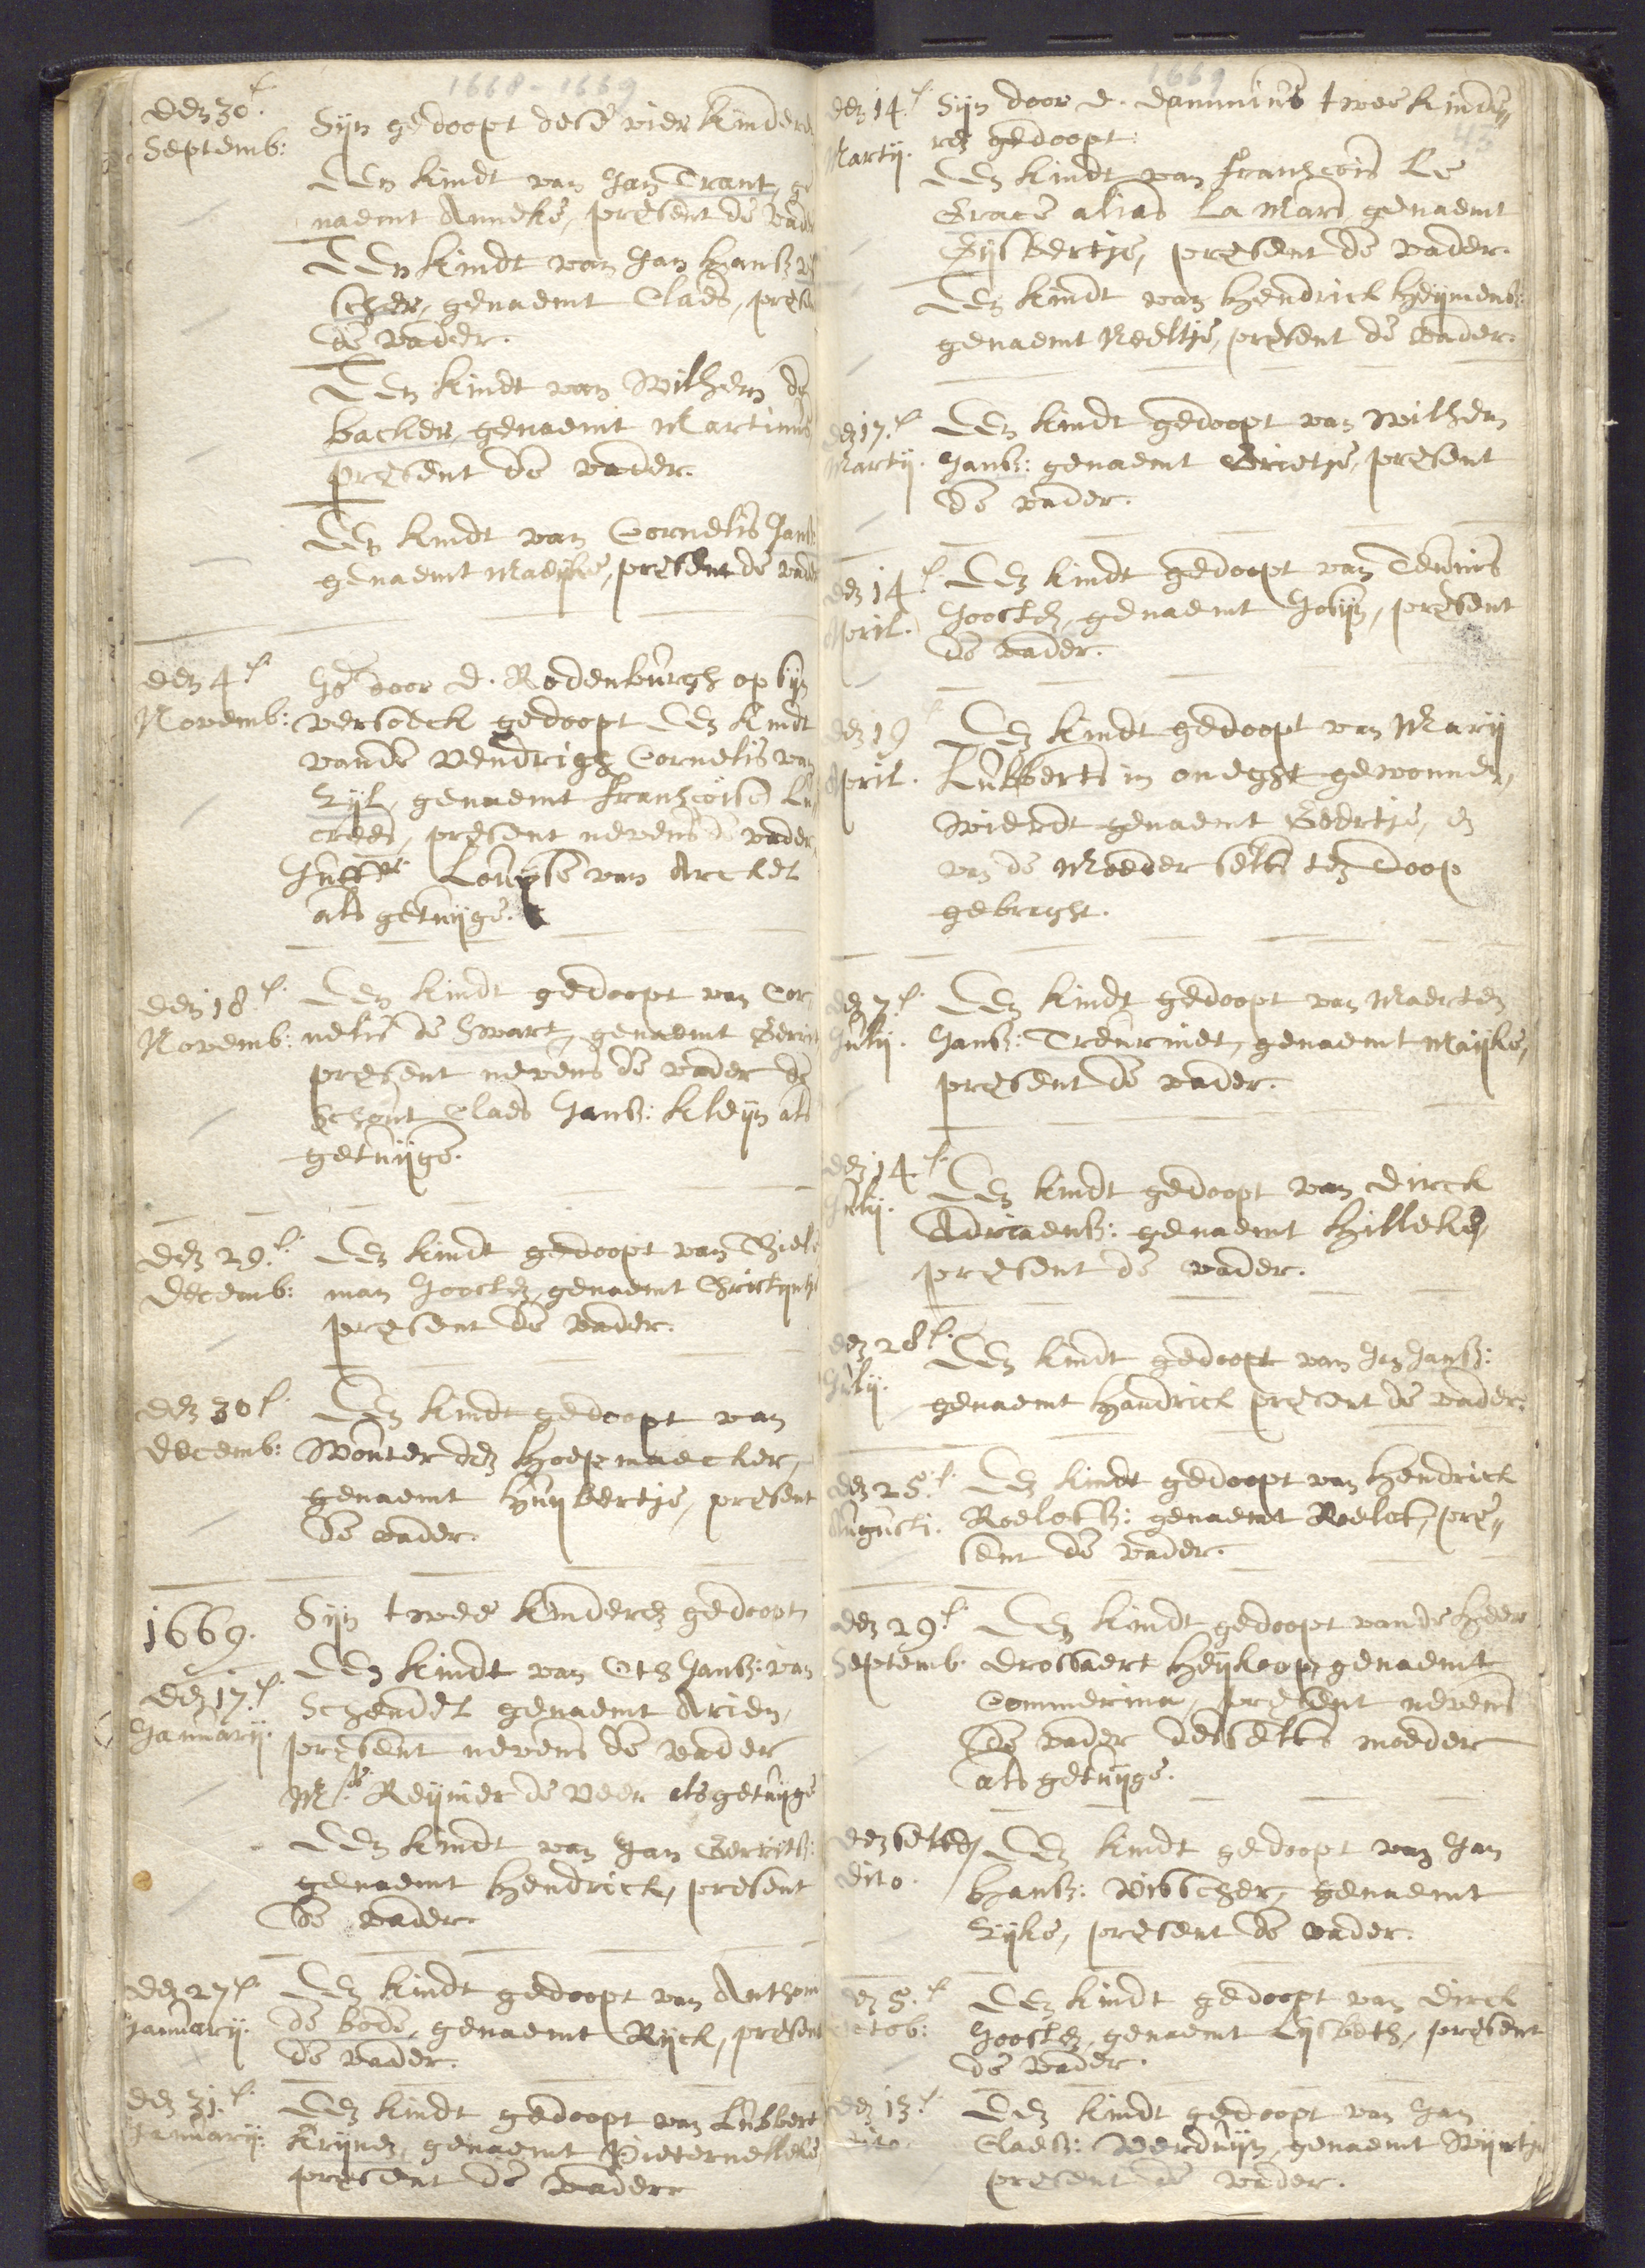 1668-1669
den 30e
Septemb:
Sijn gedoopt dese vier kindere
Een kindt van Jan Trant, ge
naemt Anneke, present de vade
Een kindt van Jan Hansz vi
scher, genaemt Claes, presen
de vader.
Een kindt van Wilhem de
backer, genaemt Martinus
present de vader.
Een kindt van Cornelis Jans
genaemt Maeijke, present de vader
den 4e
Novemb:
door D. Rodenburgh op sijn
versoeck gedoopt Een kindt
vande Vendrigh Cornelis van
Zijl, genaemt Franhcoise Lu
cres, present nevens de vader,
Juffr. Louijse van Arckel
als getuijge.
den 18e
Novemb:
Een kindt gedoopt van Cor
nelis de Swart, genaemt Gerrit
present nevens de vader de
Schout Claes Jansz: Kleijn als
getuijge.
den 29e
Decemb:
Een kindt gedoopt van Thiel
man Joosten, genaemt Christijnt
present de vader.
den 30e
Decemb:
Een kindt gedoopt van
Wouter den Hoepmaecker,
genaemt Huijbertje, present
de vader.
1669.
den 17e
January.
Sijn twee kinderen gedoopt
Een kindt van Oth Jansz: van
Schendel genaemt Arien,
present nevens de vader
Mr. Reijnier de Veer als getuijge
Een kindt van Jan Gerritsz:
genaemt Hendrick, present
de vader
den 27e
January.
Een kindt gedoopt van Anthoni
de bode, genaemt Rijck, present
de vader.
den 31e
January.
Een kindt gedoopt van Lubbert
Krijnen, genaemt Pieternelleke
present de vader
1669
45
den 14e
Martij.
Sijn door D. Dammius twee kinde
ren gedoopt:
Een kindt van Franhcois Le
Grace alias La Mars, genaemt
Gijsbertje, present de vader.
Een kindt van Hendrick Heijmensz:
genaemt Neeltje, present de vader.
den 17e
Martij.
Een kindt gedoopt van Wilhem
Jansz: genaemt Grietje, present
de vader.
den 14e
April.
Een kindt gedoopt van Teunis
Joosten, genaemt Josijn, present
de vader.
den 19
April.
Een kindt gedoopt van Marij
Lubberts in oneght gewonnen,
Wierdt genaemt Geertje, en
van de Moeder selfs ten Doop
gebraght.
den 7e
Julij.
Een kindt gedoopt van Maerten
Jansz: Treurniet, genaemt Maijke,
present de vader.
den 14e
Julij.
Een kindt gedoopt van Dirck
Adriaensz: genaemt Hilleke,
present de vader.
den 28e
Julij.
Een kindt gedoopt van Jan Jansz:
genaemt Handrick present de vader.
den 25e
Augusti.
Een kindt gedoopt van Hendrick
Roelofsz: genaemt Roelof, pre
sent de vader.
den 29e
Septemb.
Een kindt gedoopt vande Heer
Drossaert Heijkoop, genaemt
Commerina, present nevens
de vader desselfs moeder
als getuijge.
den selfden
dito.
Een kindt gedoopt van Jan
Hansz: Visscher, genaemt
Zijke, present de vader.
den 5e
Octob:
Een kindt gedoopt van Dirck
Joosten, genaemt Lijsbeth, present
de vader.
den 13e
dito.
Een kindt gedoopt van Jan
Claesz: Verduijn, genaemt Wijntje
present de vader.